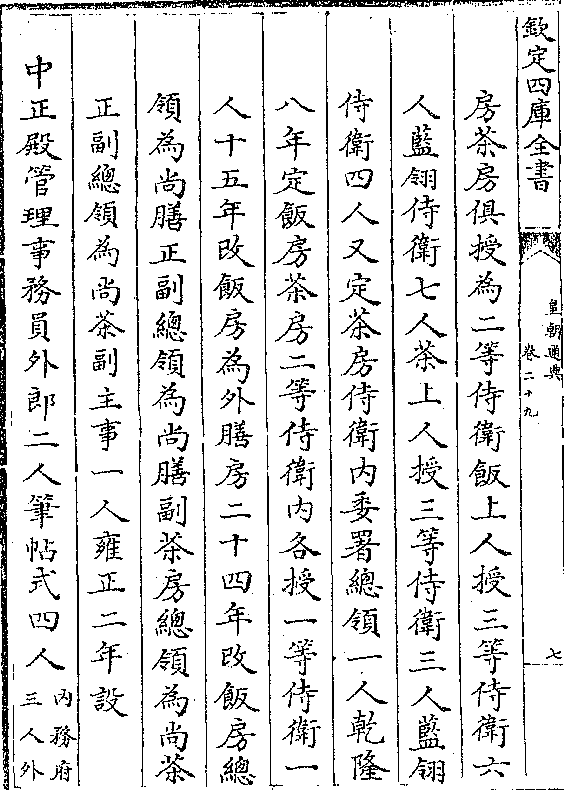 欽定四庫全書
皇朝通典
卷二十九
七
房茶房俱授為二等侍衛飯上人授三等侍衛六
人藍翎侍衛七人茶上人授三等侍衛三人藍翎
侍衛四人又定茶房侍衛内委署總領一人乾隆
八年定飯房茶房二等侍衛内各授一等侍衛一
人十五年改飯房為外膳房二十四年改飯房總
領為尚膳正副總領為尚膳副茶房總領為尚茶
正副總領為尚茶副主事一人雍正二年設
中正殿管理事務員外郎二人筆帖式四人
内務府
三人外